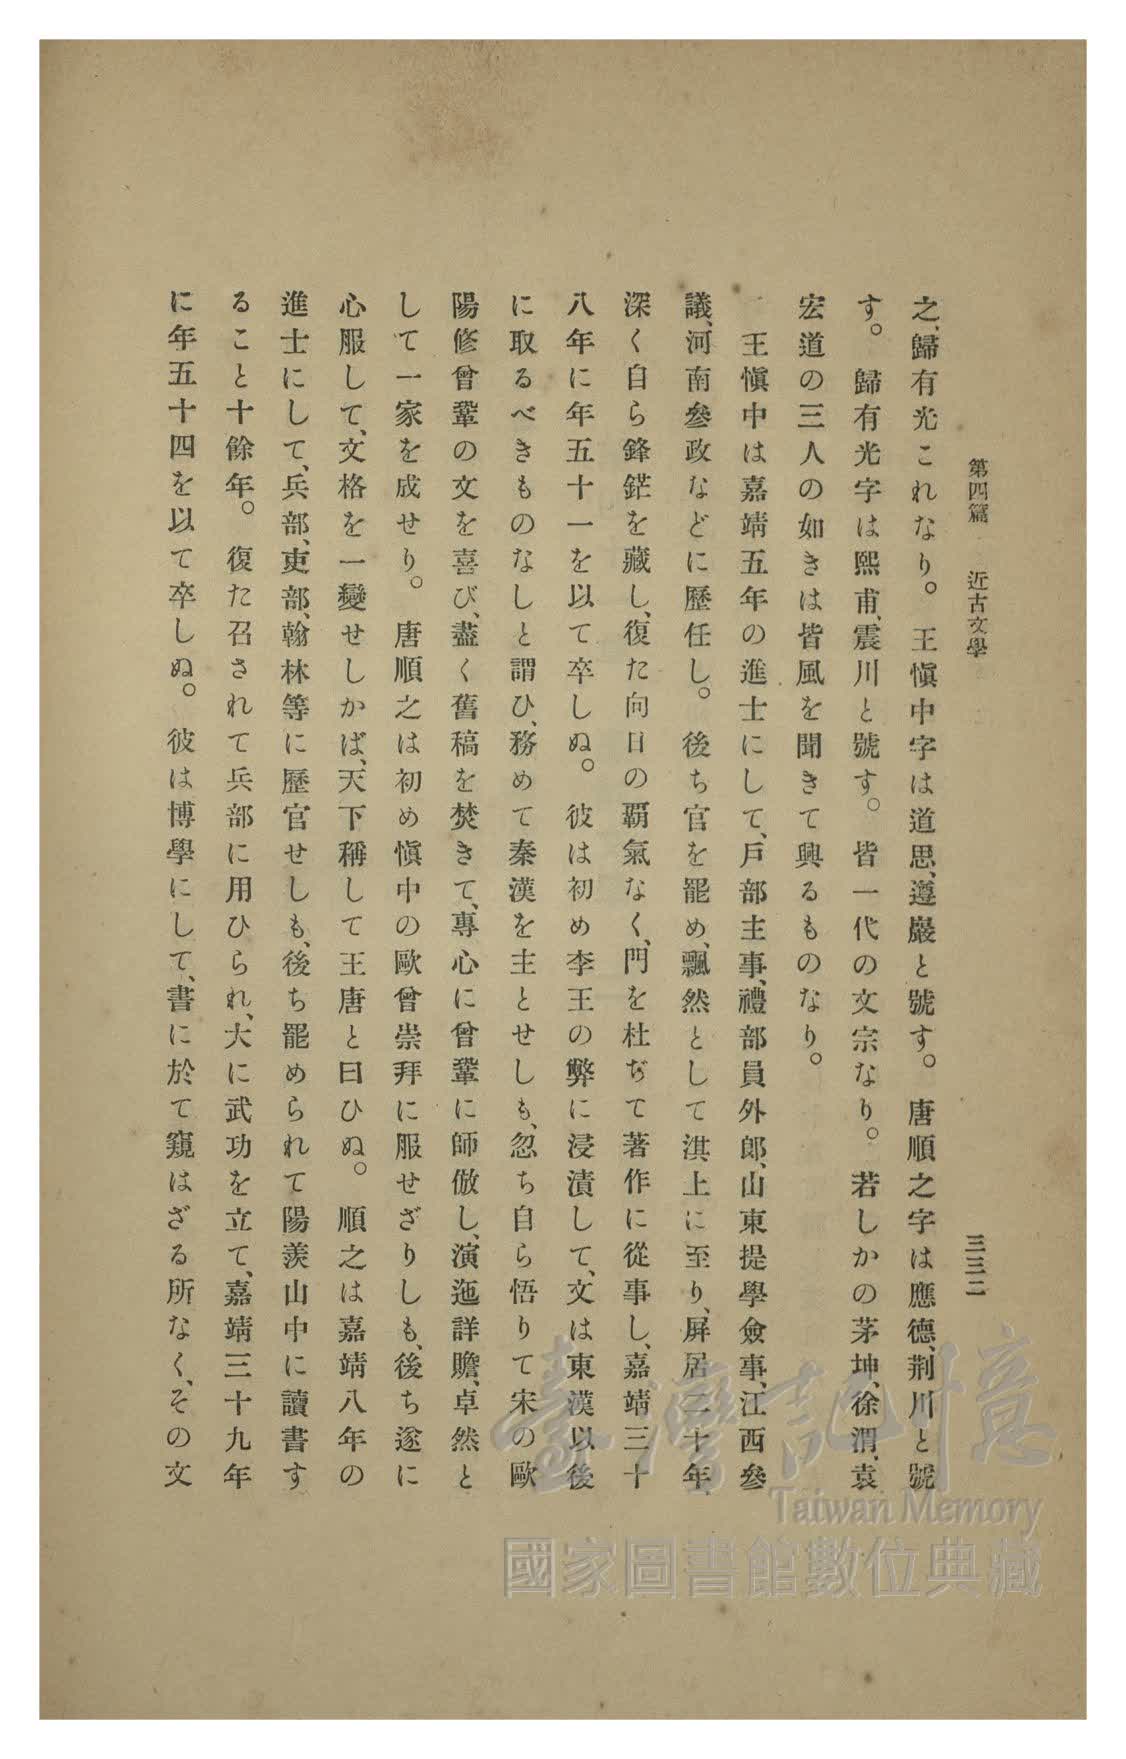 第四篇　近古文學
三三二
之、歸有光これなり。王愼中字は道思、遵巖と號す。唐順之字は應德、荆川と號
す。歸有光字は熙甫、震川と號す。皆一代の文宗なり。若しかの茅坤、徐渭、袁
宏道の三人の如きは皆風を聞きて興るものなり。
王愼中は嘉靖五年の進士にして、戶部主事、禮部員外郎、山東提學僉事、江西參
議、河南參政などに歷任し。後ち官を罷め、飄然として淇上に至り、屏居二十年、
深く自ら鋒鋩を藏し、復た向日の覇氣なく、門を杜ぢて著作に從事し、嘉靖三十
八年に年五十一を以て卒しぬ。彼は初め李王の弊に浸漬して、文は東漢以後
に取るべきものなしと謂ひ、務めて秦漢を主とせしも、忽ち自ら悟りて宋の歐
陽修曾鞏の文を喜び、盡く舊稿を焚きて、專心に曾鞏に師倣し、演迤詳贍、卓然と
して一家を成せり。唐順之は初め愼中の歐曾崇拜に服せざりしも、後ち遂に
心服して、文格を一變せしかば、天下稱して王唐と曰ひぬ。順之は嘉靖八年の
進士にして、兵部、吏部、翰林等に歷官せしも、後ち罷められて陽羨山中に讀書す
ること十餘年。復た召されて兵部に用ひられ、大に武功を立て、嘉靖三十九年
に年五十四を以て卒しぬ。彼は博學にして、書に於て窺はざる所なく、その文
臺灣記憶
Taiwan Memory
國家圖書館數位典藏